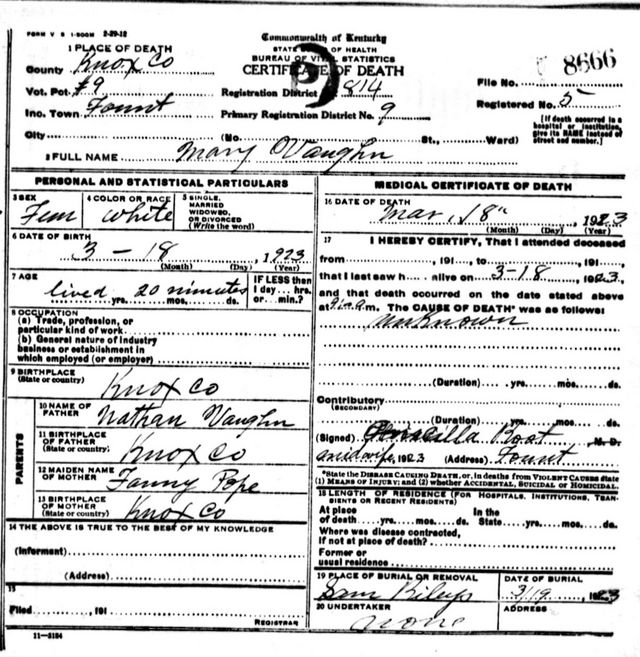 FORM V S 1-500M 2-29-12
Commonwealth of Kentucky
STATE BOARD OF HEALTH
BUREAU OF VITAL STATISTICS
CERTIFICATE OF DEATH
1 PLACE OF DEATH
County Knox Co
Vot. Pct. #9
Registration District 814
File No. 8666
Ino. Town Fount
Primary Registration District No. 9
Registered No. 5
City (No. St., Ward)
[If death occurred in a hospital or institution, give its NAME instead of street and number.]
2 FULL NAME Mary Vaughn
PERSONAL AND STATISTICAL PARTICULARS
3 SEX Fem
4 COLOR OR RACE White
5 SINGLE, MARRIED WIDOWED, OR DIVORCED (Write the word)
6 DATE OF BIRTH
3 - 18, 1923
(Month) (Day) (Year)
7 AGE
lived 20 minutes
yrs. mos. ds.
IF LESS then 1 day hrs. or min.?
8 OCCUPATION
(a) Trade, profession, or particular kind of work
(b) General nature of Industry business or establishment in which employed (or employer)
9 BIRTHPLACE
(State or country) Knox Co
PARENTS
10 NAME OF FATHER Nathan Vaughn
11 BIRTHPLACE OF FATHER (State or country) Knox Co
12 MAIDEN NAME OF MOTHER Fanny Pope
13 BIRTHPLACE OF MOTHER (State or country) Knox Co
14 THE ABOVE IS TRUE TO THE BEST OF MY KNOWLEDGE
(Informent)
(Address)
15
Filed, 191
REGISTRAR
11-5184
MEDICAL CERTIFICATE OF DEATH
16 DATE OF DEATH
Mar, 18", 1923
(Month) (Day) (Year)
17 I HEREBY CERTIFY, That I attended deceased
from, 191, to, 191,
that I last saw h alive on 3-18, 1923,
and that death occurred on the date stated above
at m. The CAUSE OF DEATH* was as follows:
Unknown
(Duration) yrs. mos. ds.
Contributory
(SECONDARY)
(Duration) yrs. mos. ds.
(Signed) M. D.
midwife, 1923 (Address) Fount
*State the DISEASE CAUSING DEATH, or, in deaths from VIOLENT CAUSES state (1) MEANS OF INJURY; and (2) whether ACCIDENTAL, SUICIDAL or HOMICIDAL.
18 LENGTH OF RESIDENCE (FOR HOSPITALS, INSTITUTIONS, TRANSIENTS OR RECENT RESIDENTS)
At place of death yrs. mos. ds. In the State yrs. mos. ds.
Where was disease contracted, If not at place of death?
Former or usual residence
19 PLACE OF BURIAL OR REMOVAL
Sam
DATE OF BURIAL
3/19, 1923
20 UNDERTAKER
none
ADDRESS